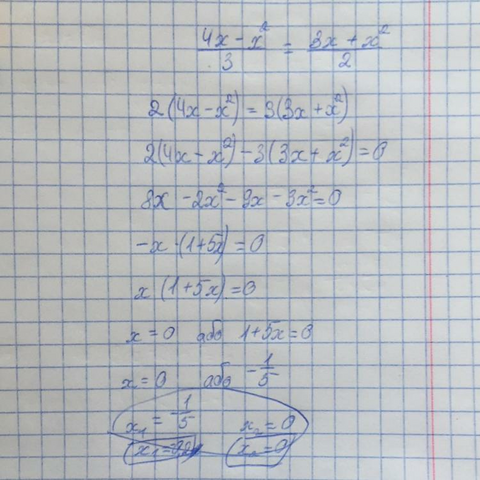 (4x - x²)/3 = (3x + x²)/2
2(4x - x²) = 3(3x + x²)
2(4x - x²) - 3(3x + x²) = 0
8x - 2x² - 9x - 3x² = 0
-x · (1+5x) = 0
x (1+5x) = 0
x = 0 або 1+5x = 0
x = 0 або -1/5
x₁ = -1/5 x₂ = 0